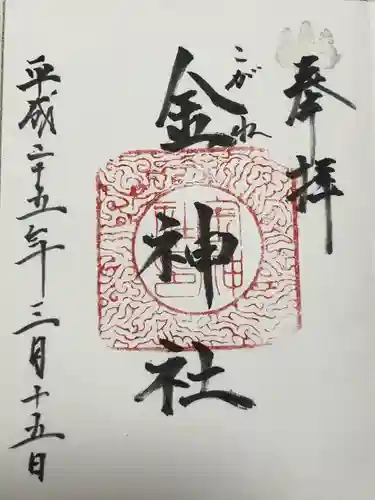 奉拝
こがれ
金神社
平成二十五年三月十五日